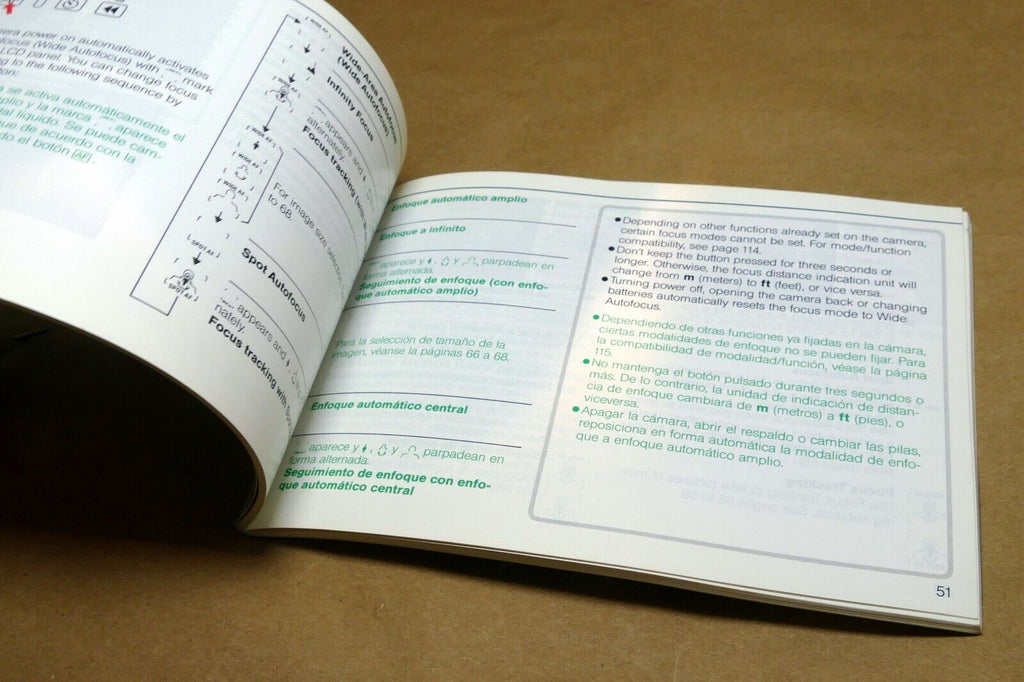 era power on automatically activates
focus (Wide Autofocus) with mark
LCD panel. You can change focus
g to the following sequence by
on:
se activa automáticamente el
plio y la marca aparece
tal líquido. Se puede cam-
ue de acuerdo con la
do el botón AF.
[ WIDE AF ]
Wide-Area Autofocus
(Wide Autofocus)
Infinity Focus
appears and
alternately.
Focus tracking (with
[ WIDE AF ]
[ WIDE AF ]
[ WIDE AF ]
For image size selection
to 68.
[ SPOT AF ]
Spot Autofocus
[ SPOT AF ]
appears and
nately.
Focus tracking with
Enfoque automático amplio
Enfoque a infinito
aparece y , y parpadean en
forma alternada.
Seguimiento de enfoque (con enfo-
que automático amplio)
Para la selección de tamaño de la
imagen, véanse la páginas 66 a 68.
Enfoque automático central
aparece y , y parpadean en
forma alternada.
Seguimiento de enfoque con enfo-
que automático central
● Depending on other functions already set on the camera,
certain focus modes cannot be set. For mode/function
compatibility, see page 114.
● Don't keep the button pressed for three seconds or
longer. Otherwise, the focus distance indication unit will
change from m (meters) to ft (feet), or vice versa.
● Turning power off, opening the camera back or changing
batteries automatically resets the focus mode to Wide
Autofocus.
● Dependiendo de otras funciones ya fijadas en la cámara,
ciertas modalidades de enfoque no se pueden fijar. Para
la compatibilidad de modalidad/función, véase la página
115.
● No mantenga el botón pulsado durante tres segundos o
más. De lo contrario, la unidad de indicación de distan-
cia de enfoque cambiará de m (metros) a ft (pies), o
viceversa.
● Apagar la cámara, abrir el respaldo o cambiar las pilas,
reposiciona en forma automática la modalidad de enfo-
que a enfoque automático amplio.
51